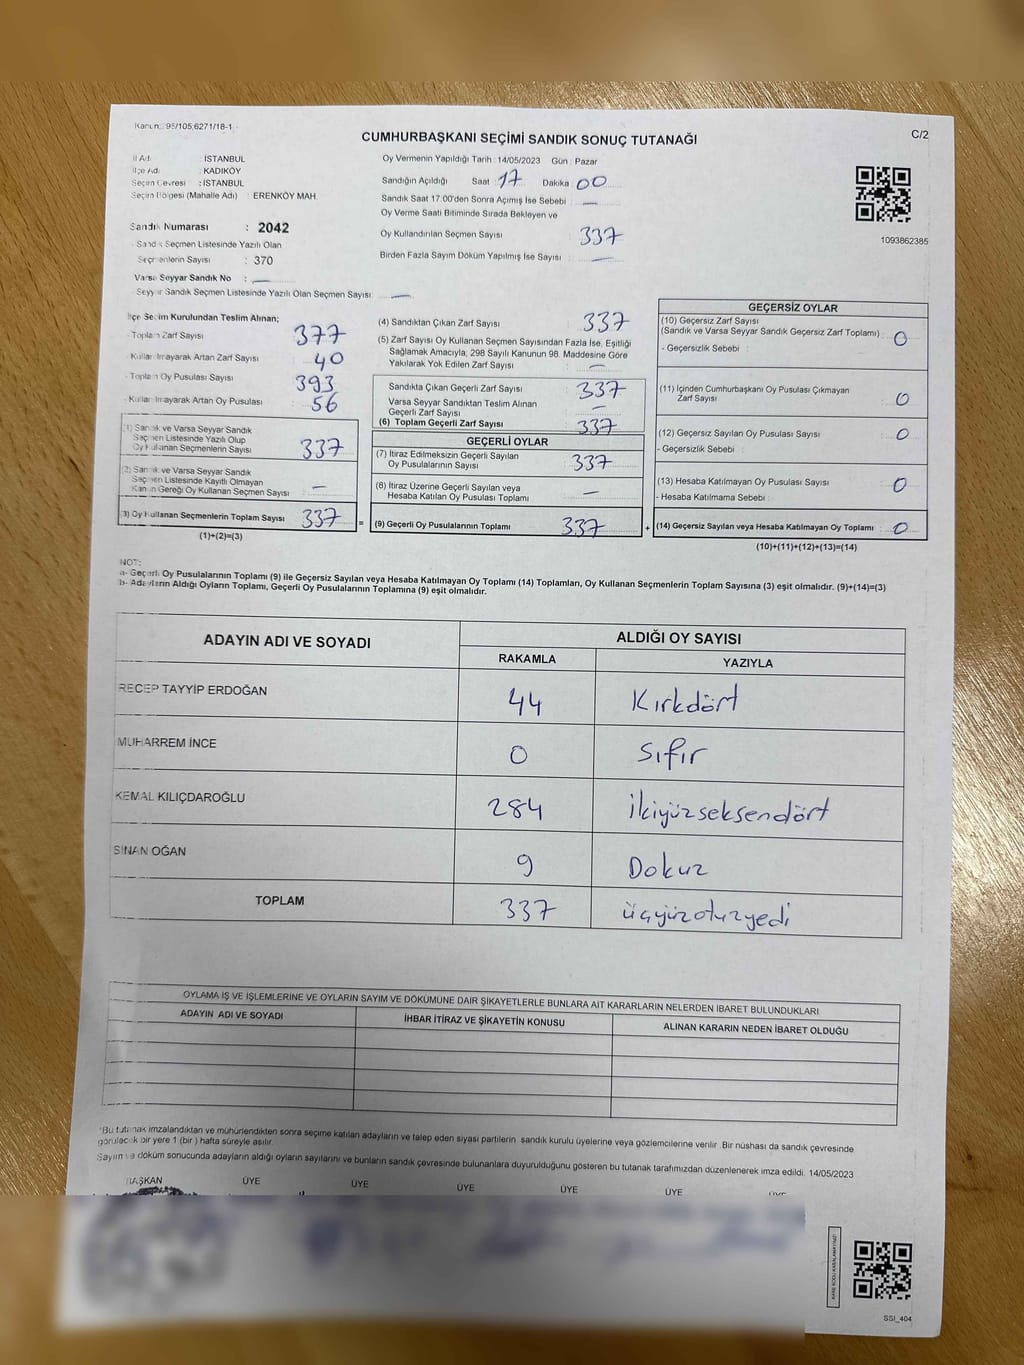 Kanun: 95/105,6271/18-1
CUMHURBAŞKANI SEÇİMİ SANDIK SONUÇ TUTANAĞI
C/2
İl Adı : İSTANBUL
İlçe Adı : KADIKÖY
Seçim Çevresi : İSTANBUL
Seçim Bölgesi (Mahalle Adı) : ERENKÖY MAH.
Sandık Numarası : 2042
- Sandık Seçmen Listesinde Yazılı Olan
Seçmenlerin Sayısı : 370
Varsa Seyyar Sandık No : —
- Seyyar Sandık Seçmen Listesinde Yazılı Olan Seçmen Sayısı: —
Oy Vermenin Yapıldığı Tarih : 14/05/2023 Gün : Pazar
Sandığın Açıldığı Saat 17 Dakika 00
Sandık Saat 17.00'den Sonra Açımış İse Sebebi : —
Oy Verme Saati Bitiminde Sırada Bekleyen ve
Oy Kullandırılan Seçmen Sayısı : 337
Birden Fazla Sayım Döküm Yapılmış İse Sayısı : —
1093862385
İlçe Seçim Kurulundan Teslim Alınan;
- Toplam Zarf Sayısı 377
- Kullanılmayarak Artan Zarf Sayısı 40
- Toplam Oy Pusulası Sayısı 393
- Kullanılmayarak Artan Oy Pusulası 56
(1) Sandık ve Varsa Seyyar Sandık
Seçmen Listesinde Yazılı Olup
Oy Kullanan Seçmenlerin Sayısı 337
(2) Sandık ve Varsa Seyyar Sandık
Seçmen Listesinde Kayıtlı Olmayan
Kanun Gereği Oy Kullanan Seçmen Sayısı —
(3) Oy Kullanan Seçmenlerin Toplam Sayısı 337
(1)+(2)=(3)
=
(4) Sandıktan Çıkan Zarf Sayısı : 337
(5) Zarf Sayısı Oy Kullanan Seçmen Sayısından Fazla İse, Eşitliği
Sağlamak Amacıyla, 298 Sayılı Kanunun 98. Maddesine Göre
Yakılarak Yok Edilen Zarf Sayısı : —
Sandıkta Çıkan Geçerli Zarf Sayısı : 337
Varsa Seyyar Sandıktan Teslim Alınan
Geçerli Zarf Sayısı : —
(6) Toplam Geçerli Zarf Sayısı : 337
GEÇERLİ OYLAR
(7) İtiraz Edilmeksizin Geçerli Sayılan
Oy Pusulalarının Sayısı : 337
(8) İtiraz Üzerine Geçerli Sayılan veya
Hesaba Katılan Oy Pusulası Toplamı : —
(9) Geçerli Oy Pusulalarının Toplamı : 337
+
GEÇERSİZ OYLAR
(10) Geçersiz Zarf Sayısı
(Sandık ve Varsa Seyyar Sandık Geçersiz Zarf Toplamı) : 0
- Geçersizlik Sebebi :
(11) İçinden Cumhurbaşkanı Oy Pusulası Çıkmayan
Zarf Sayısı : 0
(12) Geçersiz Sayılan Oy Pusulası Sayısı : 0
- Geçersizlik Sebebi :
(13) Hesaba Katılmayan Oy Pusulası Sayısı : 0
- Hesaba Katılmama Sebebi :
(14) Geçersiz Sayılan veya Hesaba Katılmayan Oy Toplamı : 0
(10)+(11)+(12)+(13)=(14)
NOT:
a- Geçerli Oy Pusulalarının Toplamı (9) ile Geçersiz Sayılan veya Hesaba Katılmayan Oy Toplamı (14) Toplamları, Oy Kullanan Seçmenlerin Toplam Sayısına (3) eşit olmalıdır. (9)+(14)=(3)
b- Adayların Aldığı Oyların Toplamı, Geçerli Oy Pusulalarının Toplamına (9) eşit olmalıdır.
ADAYIN ADI VE SOYADI
ALDIĞI OY SAYISI
RAKAMLA YAZIYLA
RECEP TAYYİP ERDOĞAN 44 Kırkdört
MUHARREM İNCE 0 sıfır
KEMAL KILIÇDAROĞLU 284 İkiyüzseksendört
SİNAN OĞAN 9 Dokuz
TOPLAM 337 üçyüzotuzyedi
OYLAMA İŞ VE İŞLEMLERİNE VE OYLARIN SAYIM VE DÖKÜMÜNE DAİR ŞİKAYETLERLE BUNLARA AİT KARARLARIN NELERDEN İBARET BULUNDUKLARI
ADAYIN ADI VE SOYADI İHBAR İTİRAZ VE ŞİKAYETİN KONUSU ALINAN KARARIN NEDEN İBARET OLDUĞU
*Bu tutanak imzalandıktan ve mühürlendikten sonra seçime katılan adayların ve talep eden siyasi partilerin sandık kurulu üyelerine veya gözlemcilerine verilir. Bir nüshası da sandık çevresinde
görülecek bir yere 1 (bir ) hafta süreyle asılır.
Sayım ve döküm sonucunda adayların aldığı oyların sayılarını ve bunların sandık çevresinde bulunanlara duyurulduğunu gösteren bu tutanak tarafımızdan düzenlenerek imza edildi. 14/05/2023
BAŞKAN ÜYE ÜYE ÜYE ÜYE ÜYE ÜYE
SSI_404